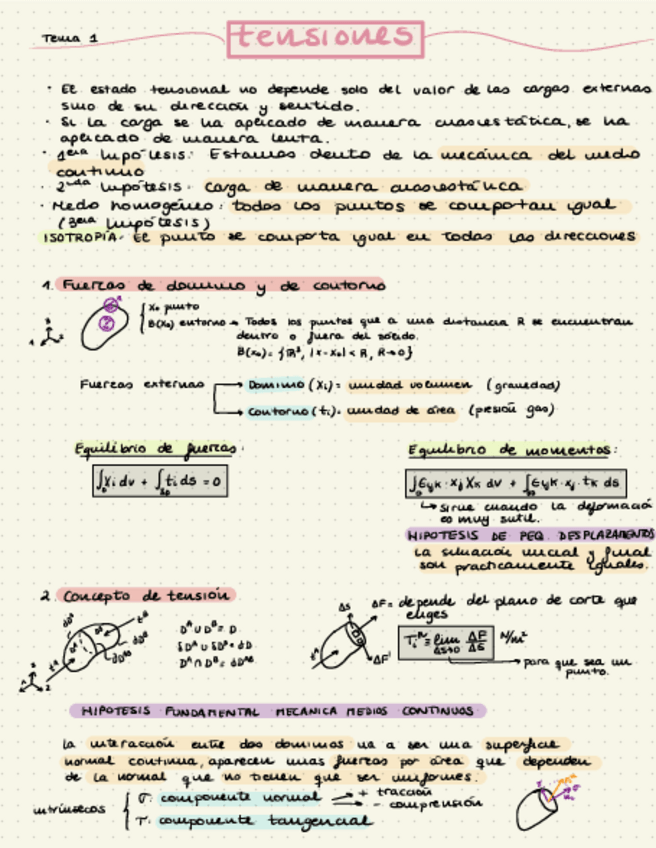 Tema 1
tensiones
· El estado tensional no depende solo del valor de las cargas externas
sino de su dirección y sentido.
· Si la carga se ha aplicado de manera cuasiestática, se ha
aplicado de manera lenta.
· 1era hipótesis: Estamos dento de la mecánica del medio
continuo
· 2nda hipótesis: carga de manera cuasiestática
· Medo homogéneo: todos los puntos se comportan igual
(3era hipótesis)
ISOTROPÍA: El punto se comporta igual en todas las direcciones
1. Fuerzas de dominio y de contorno
X₀ punto
B(X₀) entorno → Todos los puntos que a una distancia R se encuentran
dentro o fuera del sólido.
B(x₀) = {ℝ³, |x-x₀| < R, R→0}
Fuerzas externas
Dominio (Xi) = unidad volumen (gravedad)
contorno (ti) = unidad de área (presión gas)
Equilibrio de fuerzas:
Equilibrio de momentos:
∫D Xi dv + ∫∂D ti ds = 0
∫D Eijk · xj Xk dv + ∫∂D Eijk · xj · tk ds
↳ sirve cuando la deformació
es muy sutil.
HIPOTESIS DE PEQ. DESPLAZAMIENTOS
La situación inicial y final
son prácticamente iguales.
2. Concepto de tensión
ΔS
ΔF = depende del plano de corte que
eliges
Dᴬ ∪ Dᴮ = D
δDᴬ ∪ δDᴮ = δD
Dᴬ ∩ Dᴮ = δDᴬᴮ
Tiᴺ = lim ΔS→0 ΔF/ΔS N/m²
ΔF'
→ para que sea un
punto.
HIPOTESIS FUNDAMENTAL MECANICA MEDIOS CONTINUOS
La interacción entre dos dominios va a ser una superficie
normal continua, aparecen unas fuerzas por área que dependen
de la normal que no tienen que ser uniformes.
intrínsecos
σ: componente normal → + tracción
→ - comprensión
τ: componente tangencial